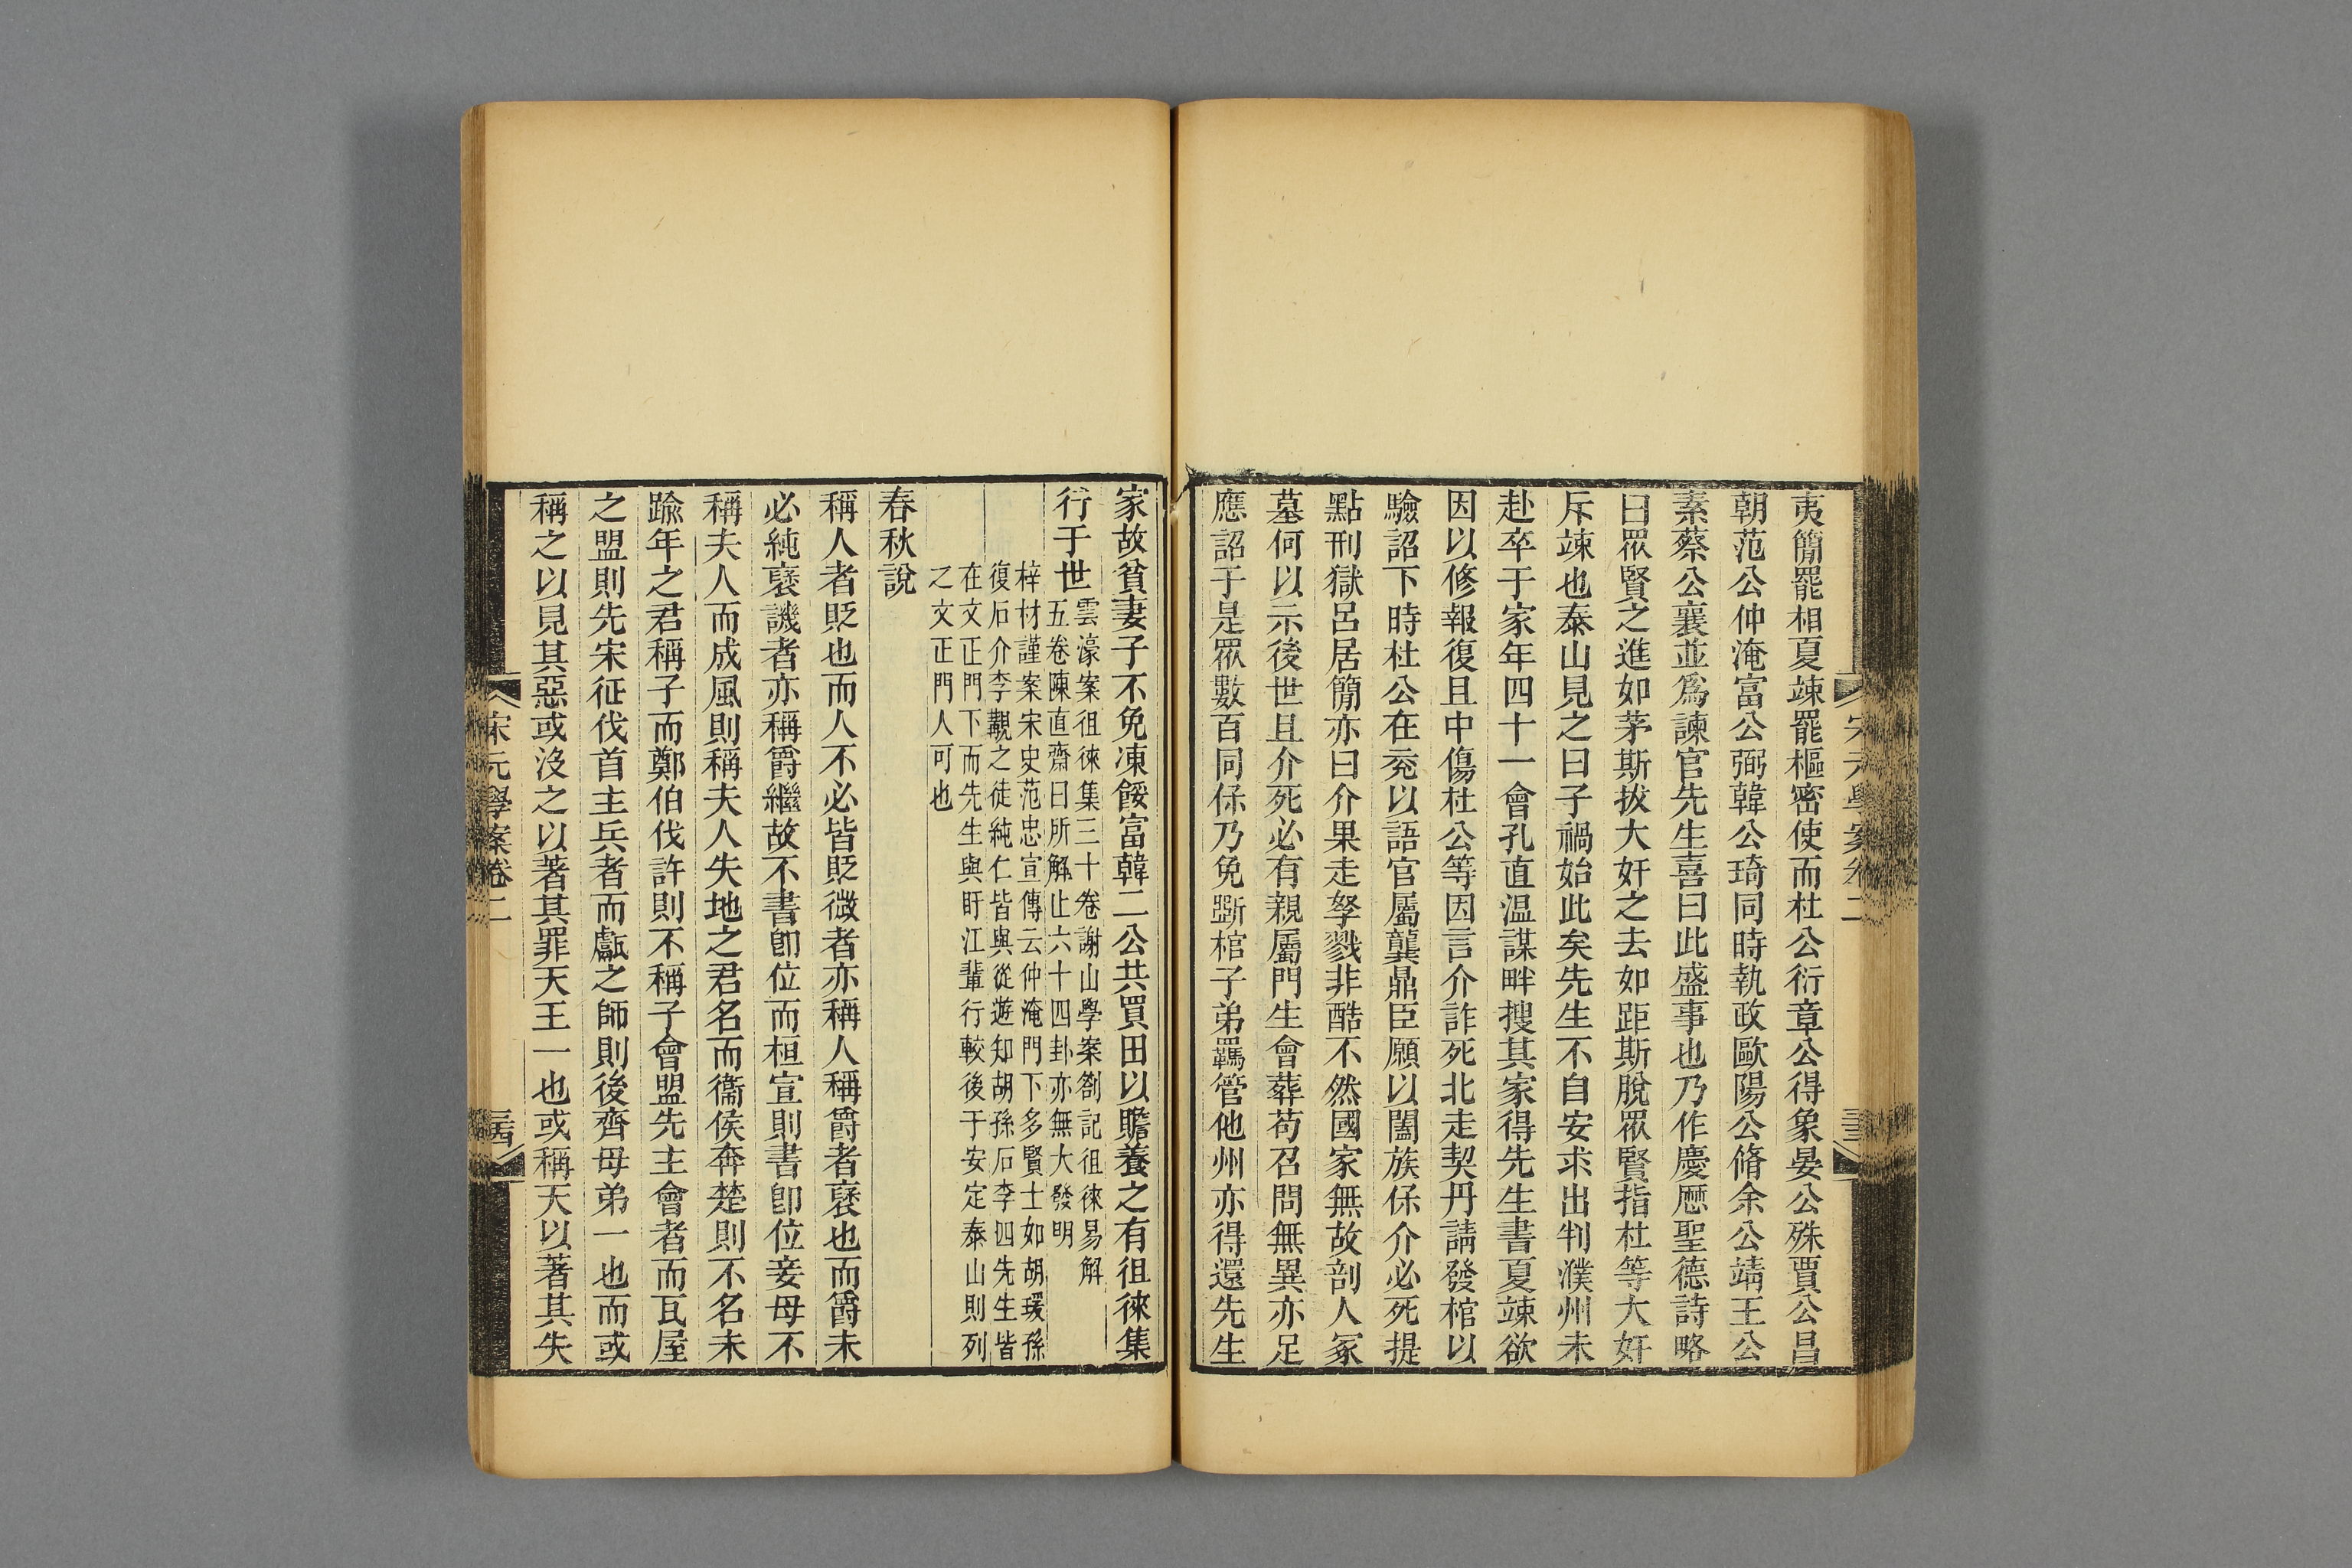 夷簡罷相夏竦罷樞密使而杜公衍章公得象晏公殊賈公昌
朝范公仲淹富公弼韓公琦同時執政歐陽公脩余公靖王公
素蔡公襄並爲諫官先生喜曰此盛事也乃作慶厯聖德詩略
曰眾賢之進如茅斯拔大奸之去如距斯脫眾賢指杜等大奸
斥竦也泰山見之曰子禍始此矣先生不自安求出判濮州未
赴卒于家年四十一會孔直溫謀畔搜其家得先生書夏竦欲
因以修報復且中傷杜公等因言介詐死北走契丹請發棺以
驗詔下時杜公在兗以語官屬龔鼎臣願以闔族保介必死提
點刑獄呂居簡亦曰介果走孥戮非酷不然國家無故剖人冢
墓何以示後世且介死必有親屬門生會葬苟召問無異亦足
應詔于是眾數百同保乃免斲棺子弟羈管他州亦得還先生
家故貧妻子不免凍餒富韓二公共買田以贍養之有徂徠集
行于世
雲濠案徂徠集二十卷謝山學案劄記徂徠易解
五卷陳直齋曰所解止六十四卦亦無大發明
梓材謹案宋史范忠宣傳云仲淹門下多賢士如胡瑗孫
復石介李覯之徒純仁皆與從遊知胡孫石李四先生皆
在文正門下而先生與盱江輩行較後于安定泰山則列
之文正門人可也
春秋說
稱人者貶也而人不必皆貶微者亦稱人稱爵者襃也而爵未
必純襃譏者亦稱爵繼故不書卽位而桓宣則書卽位妾母不
稱夫人而成風則稱夫人失地之君名而衞侯奔楚則不名未
踰年之君稱子而鄭伯伐許則不稱子會盟先主會者而瓦屋
之盟則先宋征伐首主兵者而甗之師則後齊母弟一也而或
稱之以見其惡或沒之以著其罪天王一也或稱天以著其失
宋元學案卷二